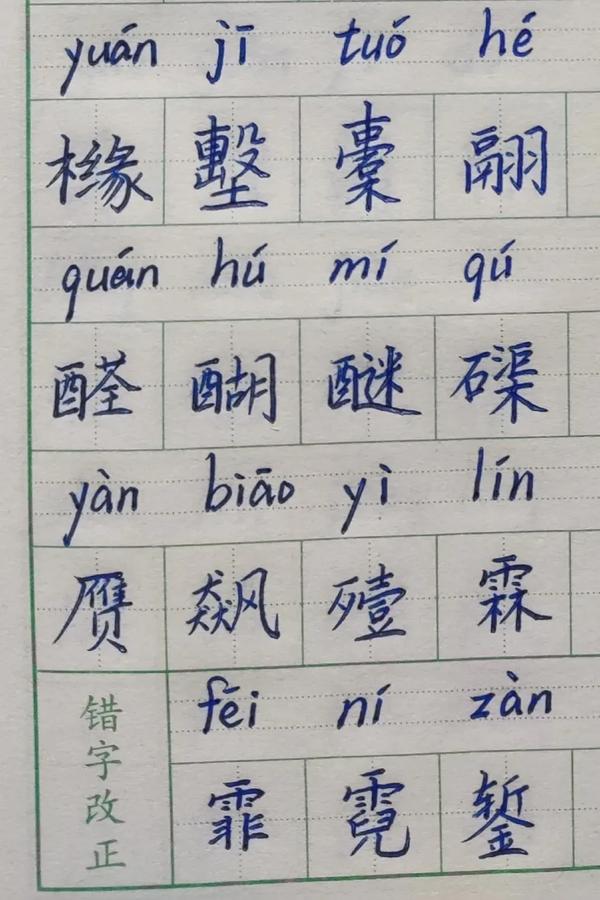 yuán jī tuó hé
橼 墼 橐 翮
quán hú mí qú
醛 醐 醚 磲
yàn biāo yì lín
赝 飙 殪 霖
错字改正
fēi ní zàn
霏 霓 錾